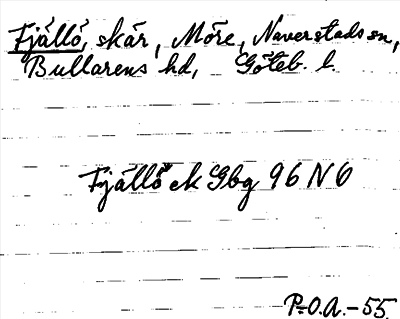 Fjällö, skär, Möre, Naverstads sn,
Bullarens hd, Göteb. l.
Fjällö ek Gbg 96 NO
P.O.A.-55.